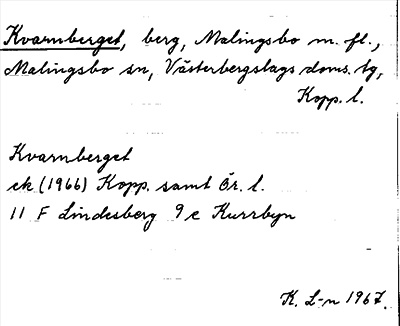 Kvarnberget, berg, Malingsbo m. fl.,
Malingsbo sn, Västerbergslags doms. tg,
Kopp. l.
Kvarnberget
ek (1966) Kopp. samt Ör. l.
11 F Lindesberg 9 e Kurrbyn
K. L-n 1967.